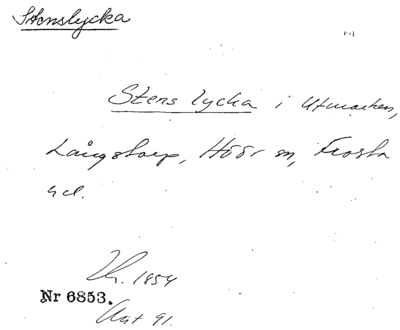 Stenslycka
Stens lycka i Utmarken,
Långstorp, Höör sn, Frosta
hd.
1854
Nr 6853.
Akt 91.